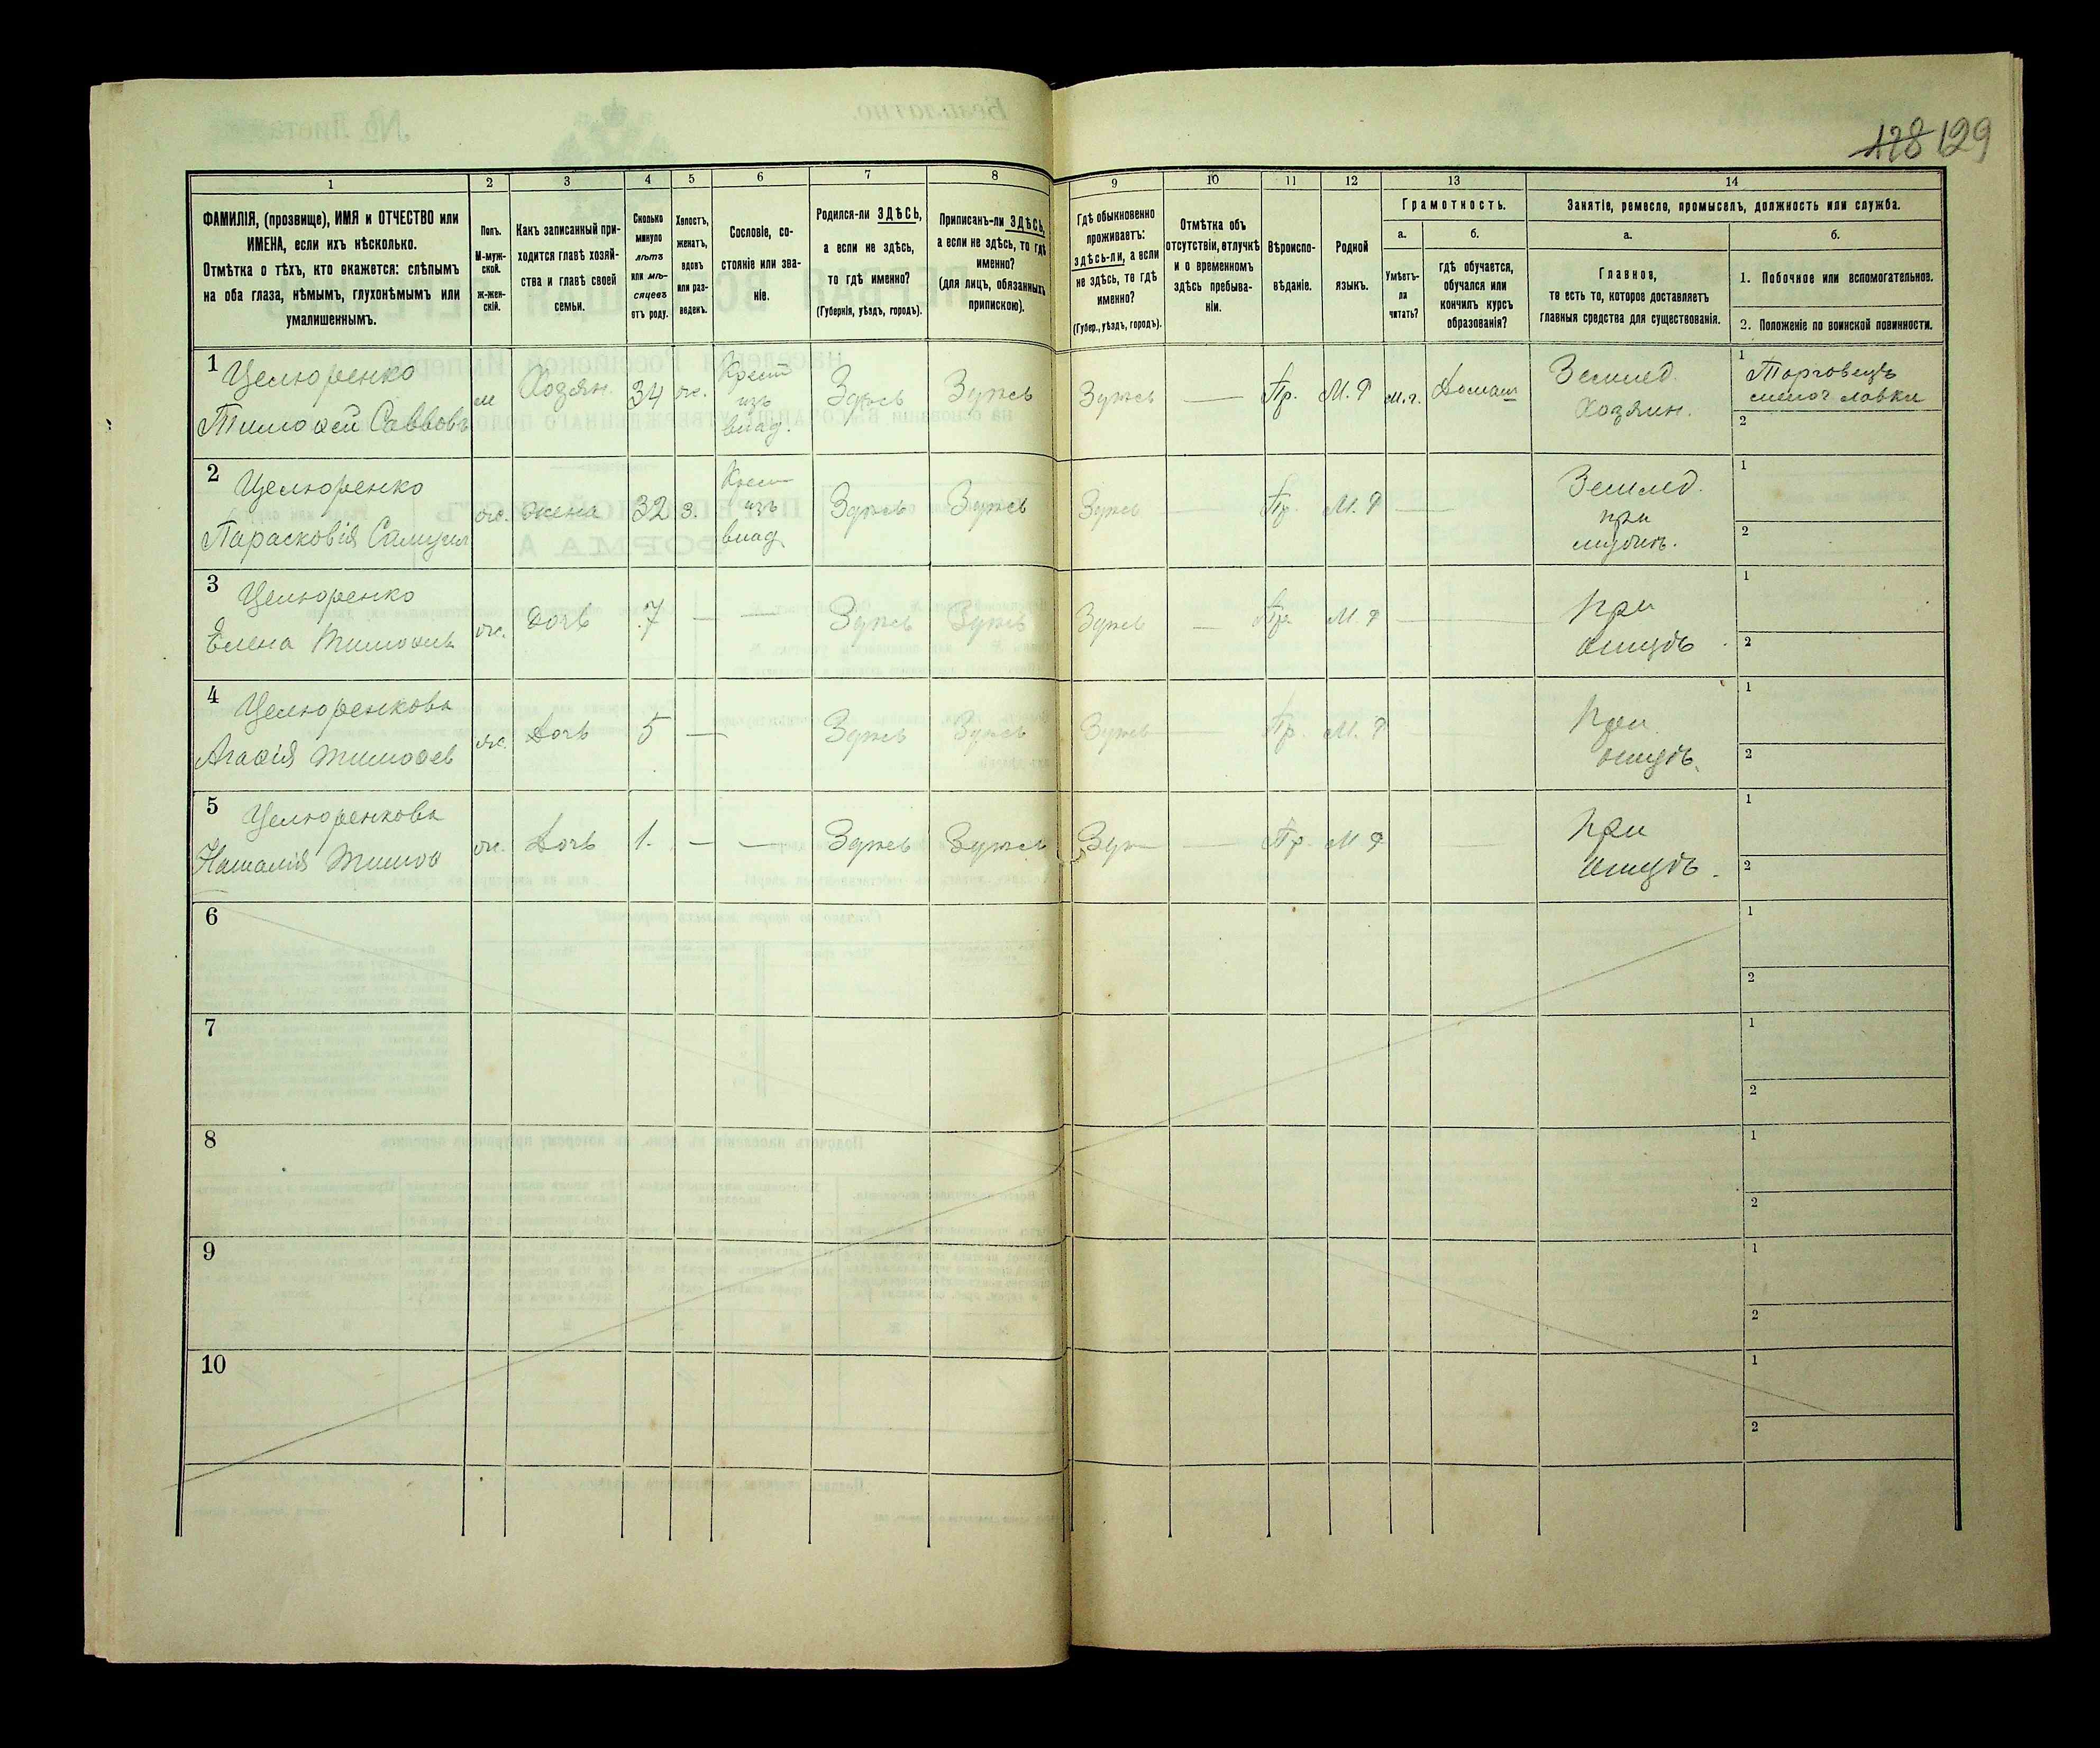 128 129
1 2 3 4 5 6 7 8 9 10 11 12 13 14
ФАМИЛІЯ, (прозвище), ИМЯ и ОТЧЕСТВО или
ИМЕНА, если ихъ нѣсколько.
Отмѣтка о тѣхъ, кто окажется: слѣпымъ
на оба глаза, нѣмымъ, глухонѣмымъ или
умалишеннымъ.
Полъ.
М-муж-
ской.
ж-жен-
скій.
Какъ записанный при-
ходится главѣ хозяй-
ства и главѣ своей
семьи.
Сколько
минуло
лѣтъ
или мѣ-
сяцевъ
отъ роду.
Холостъ,
женатъ,
вдовъ
или раз-
веденъ.
Сословіе, со-
стояніе или зва-
ніе.
Родился-ли ЗДѢСЬ,
а если не здѣсь,
то гдѣ именно?
(Губернія, уѣздъ, городъ).
Приписанъ-ли ЗДѢСЬ,
а если не здѣсь, то гдѣ
именно?
(для лицъ, обязанныхъ
припискою).
Гдѣ обыкновенно
проживаетъ:
здѣсь-ли, а если
не здѣсь, то гдѣ
именно?
(Губер., уѣздъ, городъ).
Отмѣтка объ
отсутствіи, отлучкѣ
и о временномъ
здѣсь пребыва-
ніи.
Вѣроиспо-
вѣданіе.
Родной
языкъ.
Грамотность.
а.
Умѣетъ-
ли
читать?
б.
гдѣ обучается,
обучался или
кончилъ курсъ
образованія?
Занятіе, ремесло, промыселъ, должность или служба.
а.
Главное,
то есть то, которое доставляетъ
главныя средства для существованія.
б.
1. Побочное или вспомогательное.
2. Положеніе по воинской повинности.
1 Целюренко
Тимоѳей Саввовъ
м Хозян. 34 ж.
Крест
изъ
влад.
Здѣсь Здѣсь Здѣсь — Пр. М. Р Домаш
Землед.
Хозяин.
1 Торговецъ
мелоч лавки
2
2 Целюренко
Парасковія Самуил
ж. жена 32 з.
Крест
изъ
влад.
Здѣсь Здѣсь Здѣсь — Пр. М. Р —
Землед.
при
мужѣ.
1
2
3 Целюренко
Елена Тимоѳ
ж. Дочь 7 — — Здѣсь Здѣсь Здѣсь — Пр. М. Р —
при
отцѣ
1
2
4 Целюренкова
Агаѳія Тимоѳев
ж. Дочь 5 — Здѣсь Здѣсь Здѣсь — Пр. М. Р —
при
отцѣ.
1
2
5 Целюренкова
Наталія Тимоѳ
ж. Дочь 1. — — Здѣсь Здѣсь Здѣ — Пр. М Р —
при
отцѣ.
1
2
6 1
2
7 1
2
8 1
2
9 1
2
10 1
2